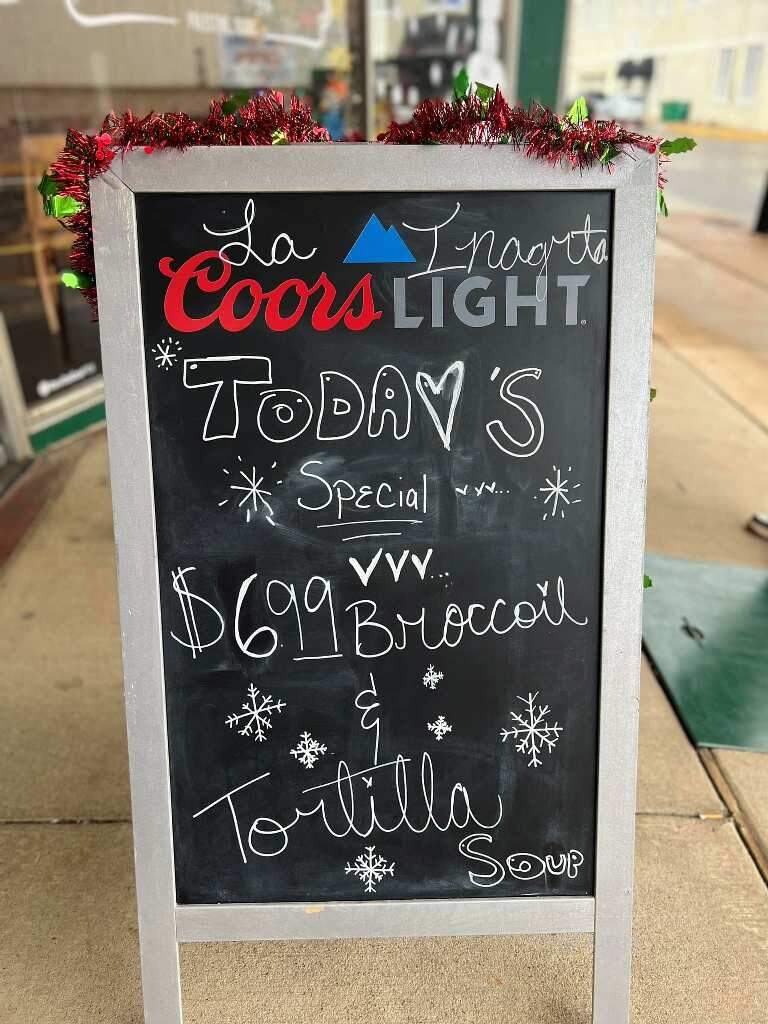 La Inagrta
Coors LIGHT
TODAY'S
Special
$6.99 Broccoil
&
Tortilla
Soup